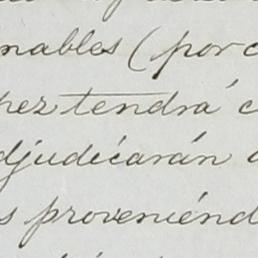 nables (por c
pez tendrá c
djudicarán a
s proveniénd